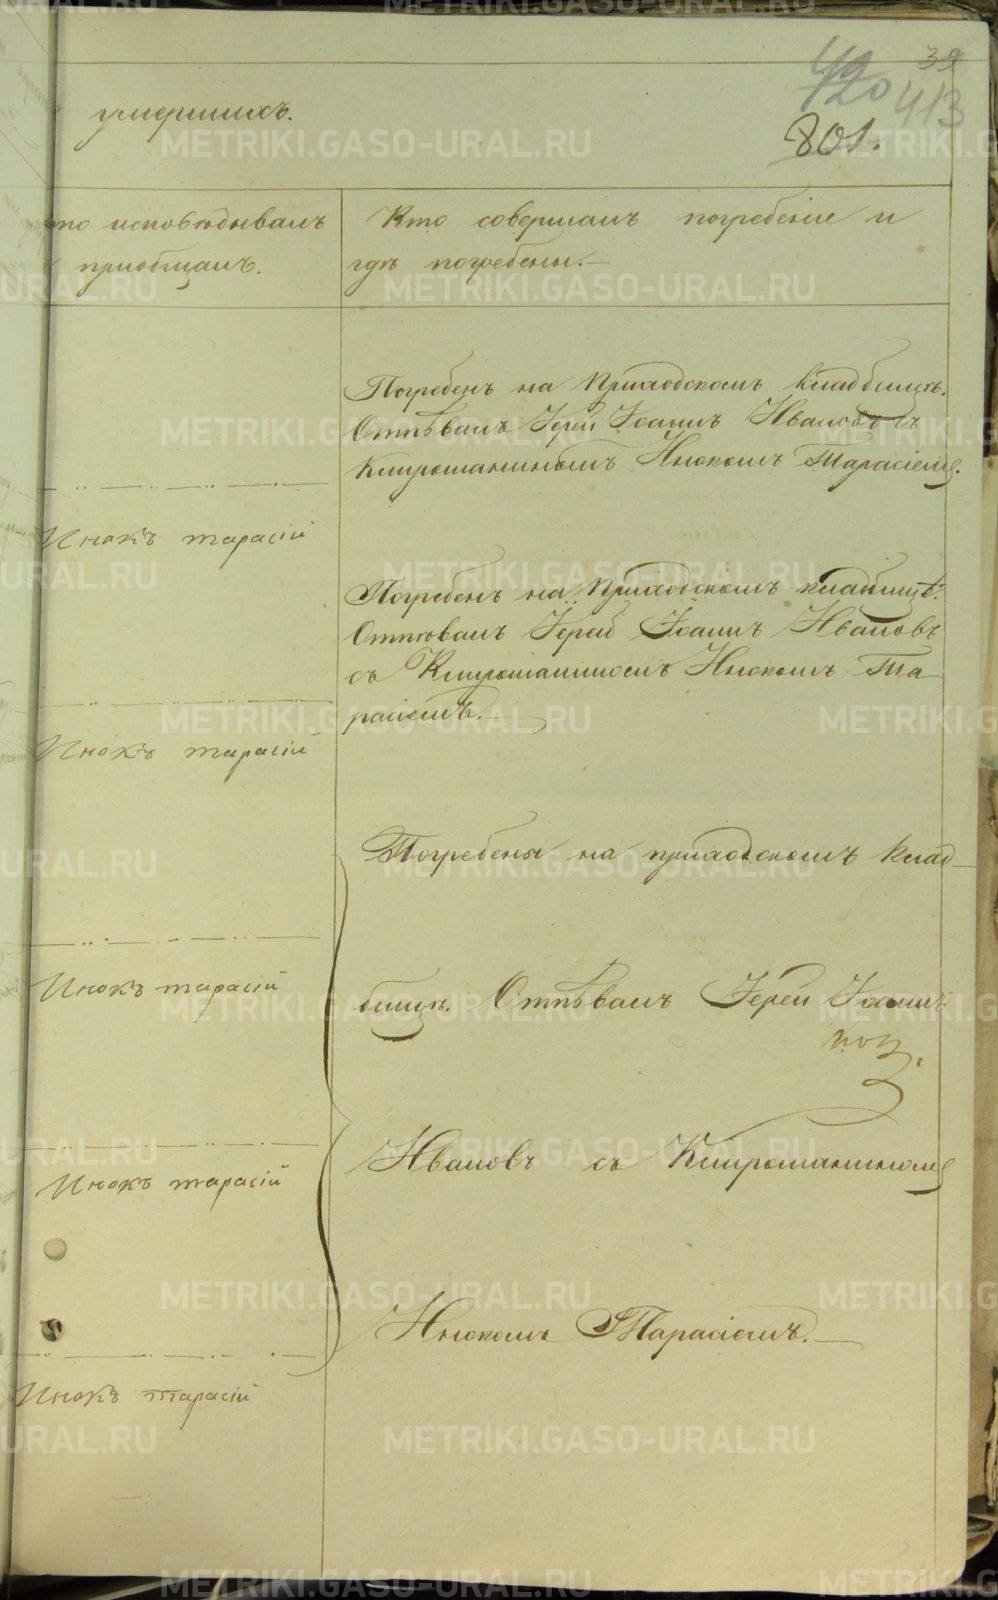 39
420
413
801.
умершихъ.
то исповѣдывалъ
и приобщалъ.
Кто совершалъ погребеніе и
гдѣ погребены.
Погребенъ на Приходскомъ кладбищѣ.
Отпѣвалъ Іерей Іоаннъ Ивановъ съ
Клирошаниномъ Инокомъ Тарасіемъ.
Инокъ тарасій
Погребенъ на Приходскомъ кладбищѣ.
Отпѣвалъ Іерей Іоаннъ Ивановъ
съ Клирошаниномъ Инокомъ Та
расіемъ.
Инокъ тарасій
Погребены на приходскомъ клад
бищѣ. Отпѣвалъ Іерей Іоаннъ
Инокъ тарасій
Ивановъ съ Клирошаниномъ
Инокъ тарасій
Инокомъ Тарасіемъ.
Инокъ тарасій
METRIKI.GASO-URAL.RU